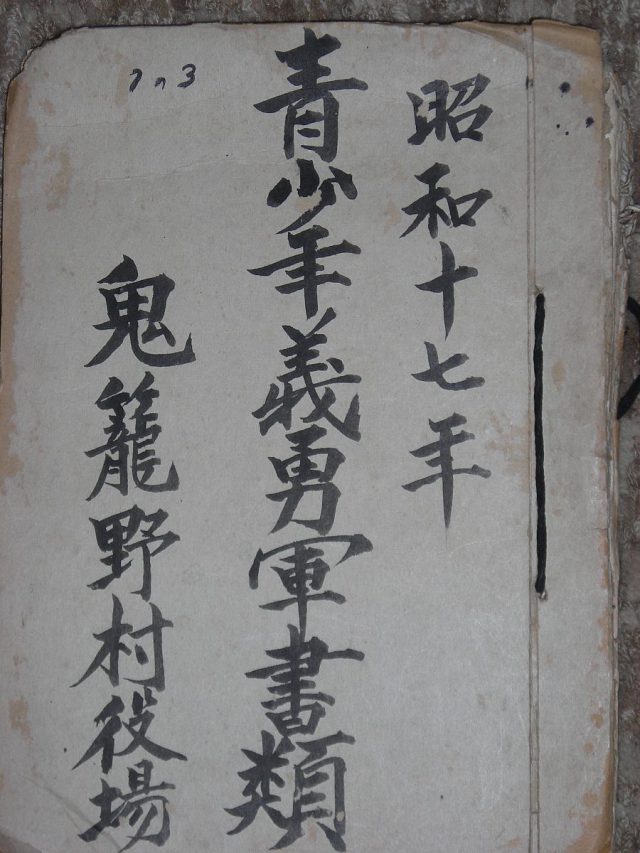 昭和十七年
青少年義勇軍書類
鬼籠野村役場
7の3